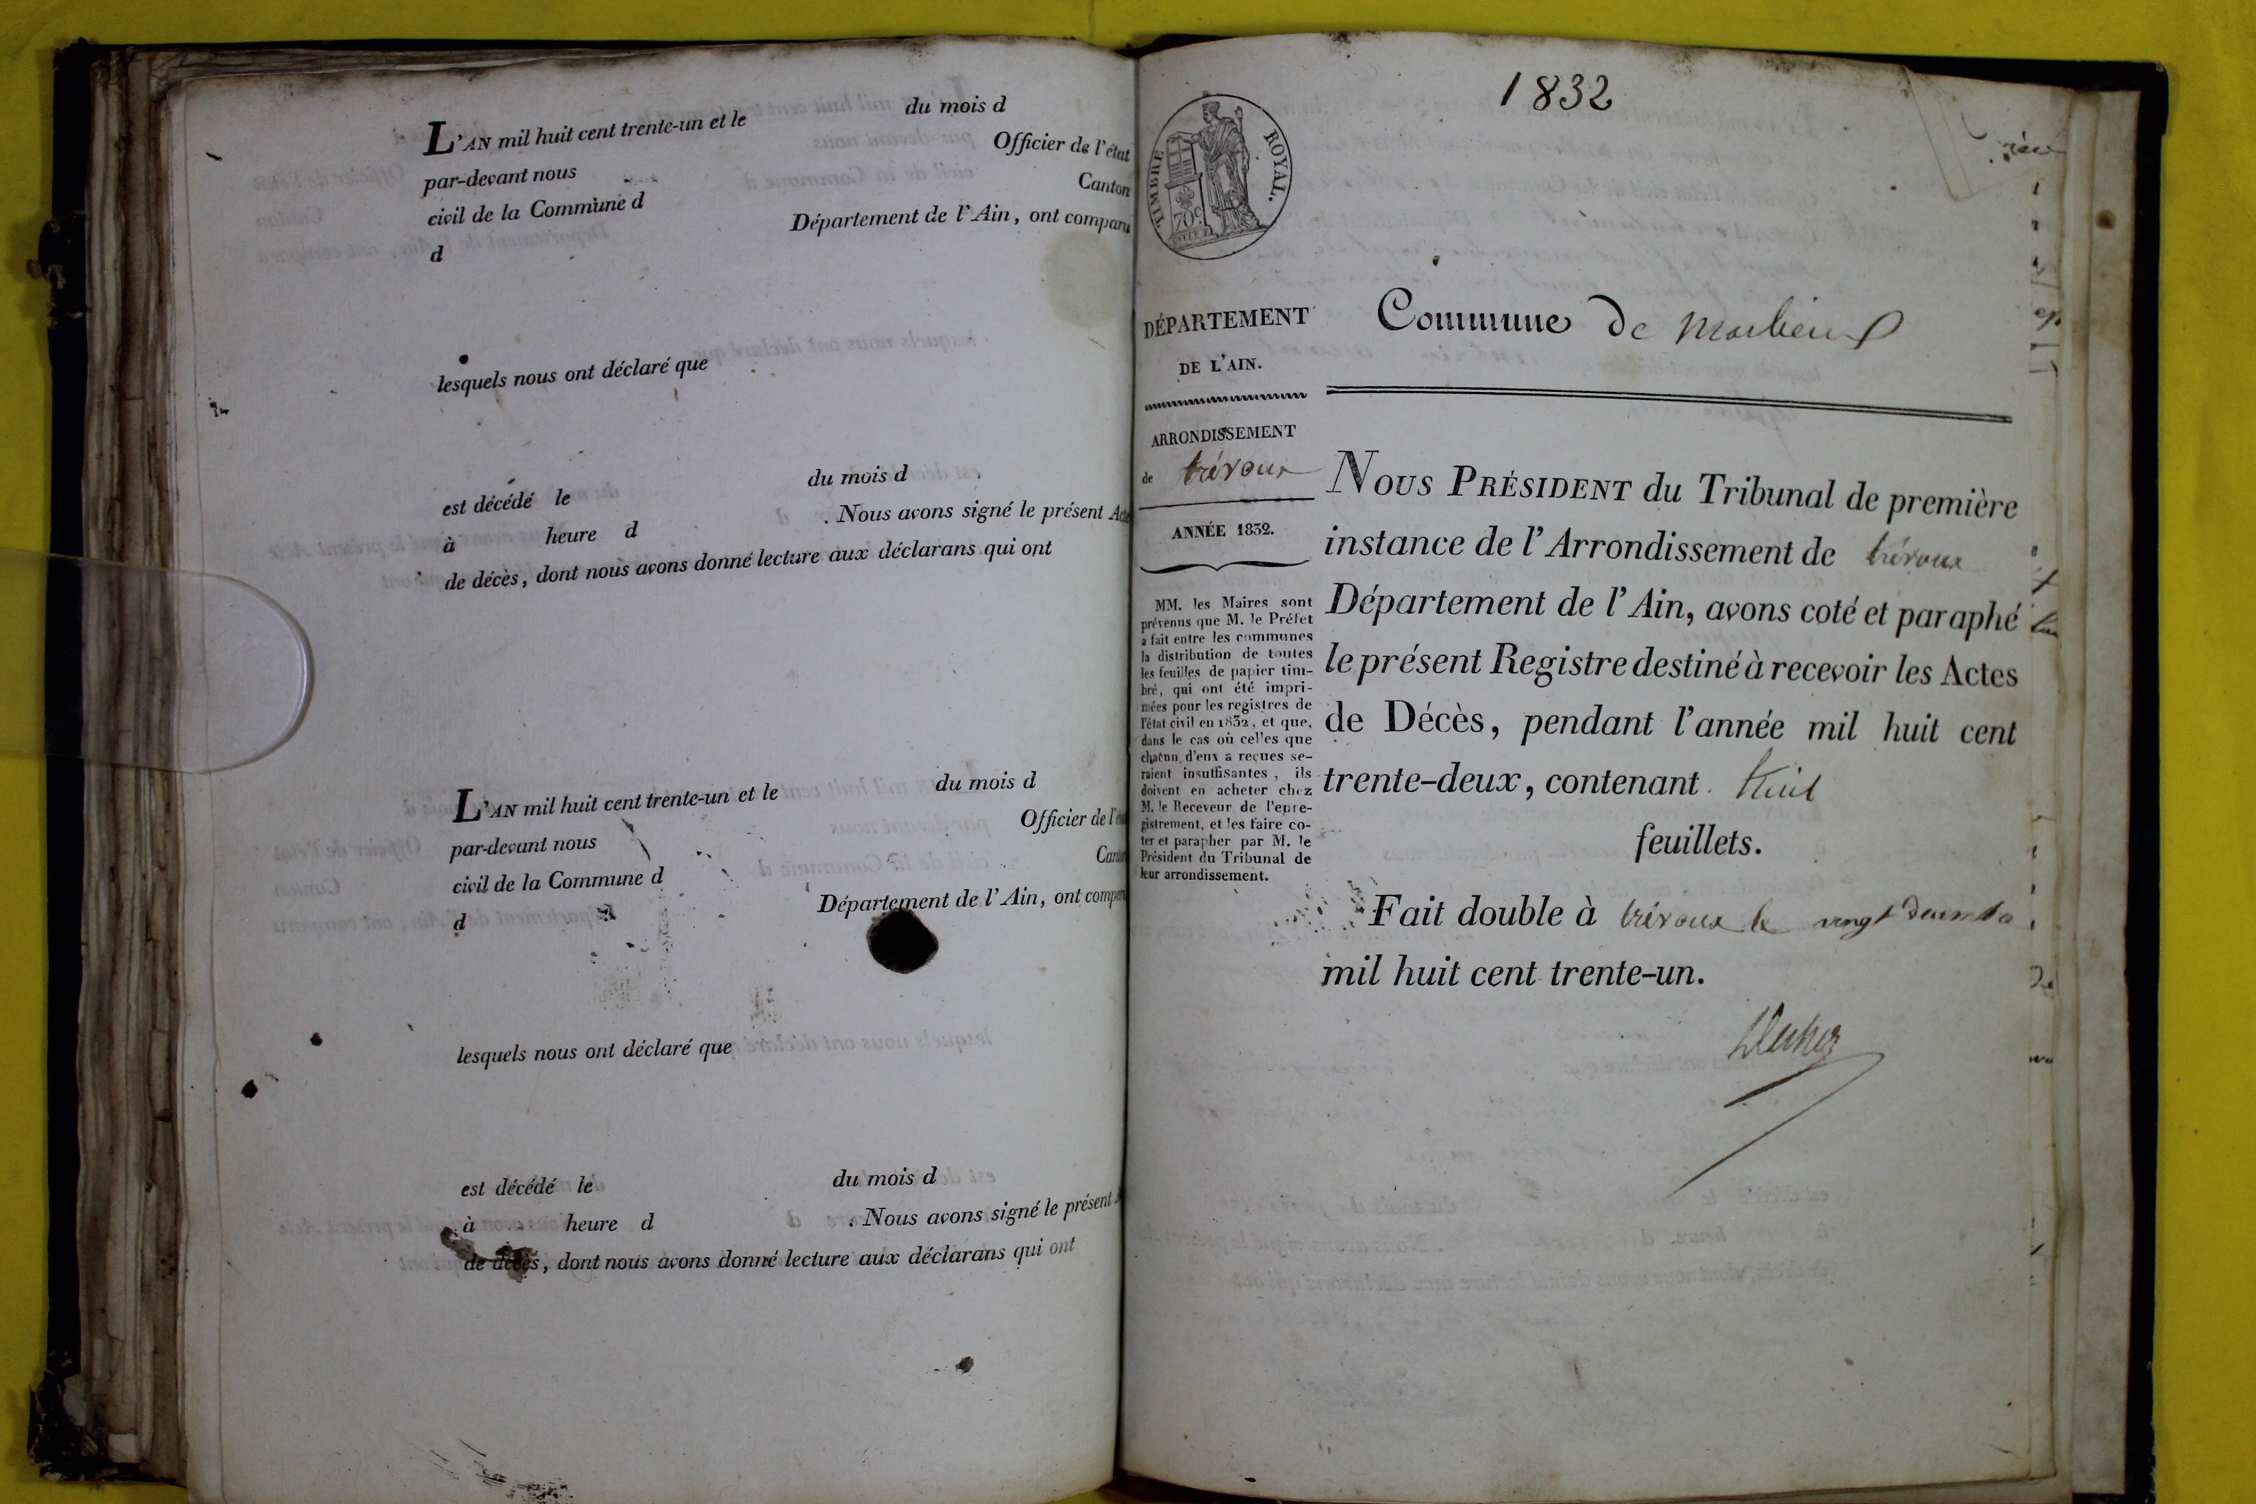 L'AN mil huit cent trente-un et le du mois d
par-devant nous Officier de l'état
civil de la Commune d Canton
d Département de l'Ain, ont comparu
lesquels nous ont déclaré que
est décédé le du mois d
à heure d . Nous avons signé le présent Acte
de décès, dont nous avons donné lecture aux déclarans qui ont
L'AN mil huit cent trente-un et le du mois d
par-devant nous Officier de l'
civil de la Commune d
d Département de l'Ain, ont
lesquels nous ont déclaré que
est décédé le du mois d
à heure d . Nous avons signé le présent
de décès, dont nous avons donné lecture aux déclarans qui ont
1832
TIMBRE ROYAL.
70c.
Commune de Marlieux
DÉPARTEMENT
DE L'AIN.
ARRONDISSEMENT
de trévoux
ANNÉE 1832.
MM. les Maires sont
prévenus que M. le Préfet
a fait entre les communes
la distribution de toutes
les feuilles de papier tim-
bré, qui ont été impri-
mées pour les registres de
l'état civil en 1832, et que,
dans le cas où celles que
chacun d'eux a reçues se-
raient insuffisantes, ils
doivent en acheter chez
M. le Receveur de l'enre-
gistrement, et les faire co-
ter et parapher par M. le
Président du Tribunal de
leur arrondissement.
NOUS PRÉSIDENT du Tribunal de première
instance de l'Arrondissement de trévoux
Département de l'Ain, avons coté et paraphé
le présent Registre destiné à recevoir les Actes
de Décès, pendant l'année mil huit cent
trente-deux, contenant huit
feuillets.
Fait double à trévoux le vingt
mil huit cent trente-un.